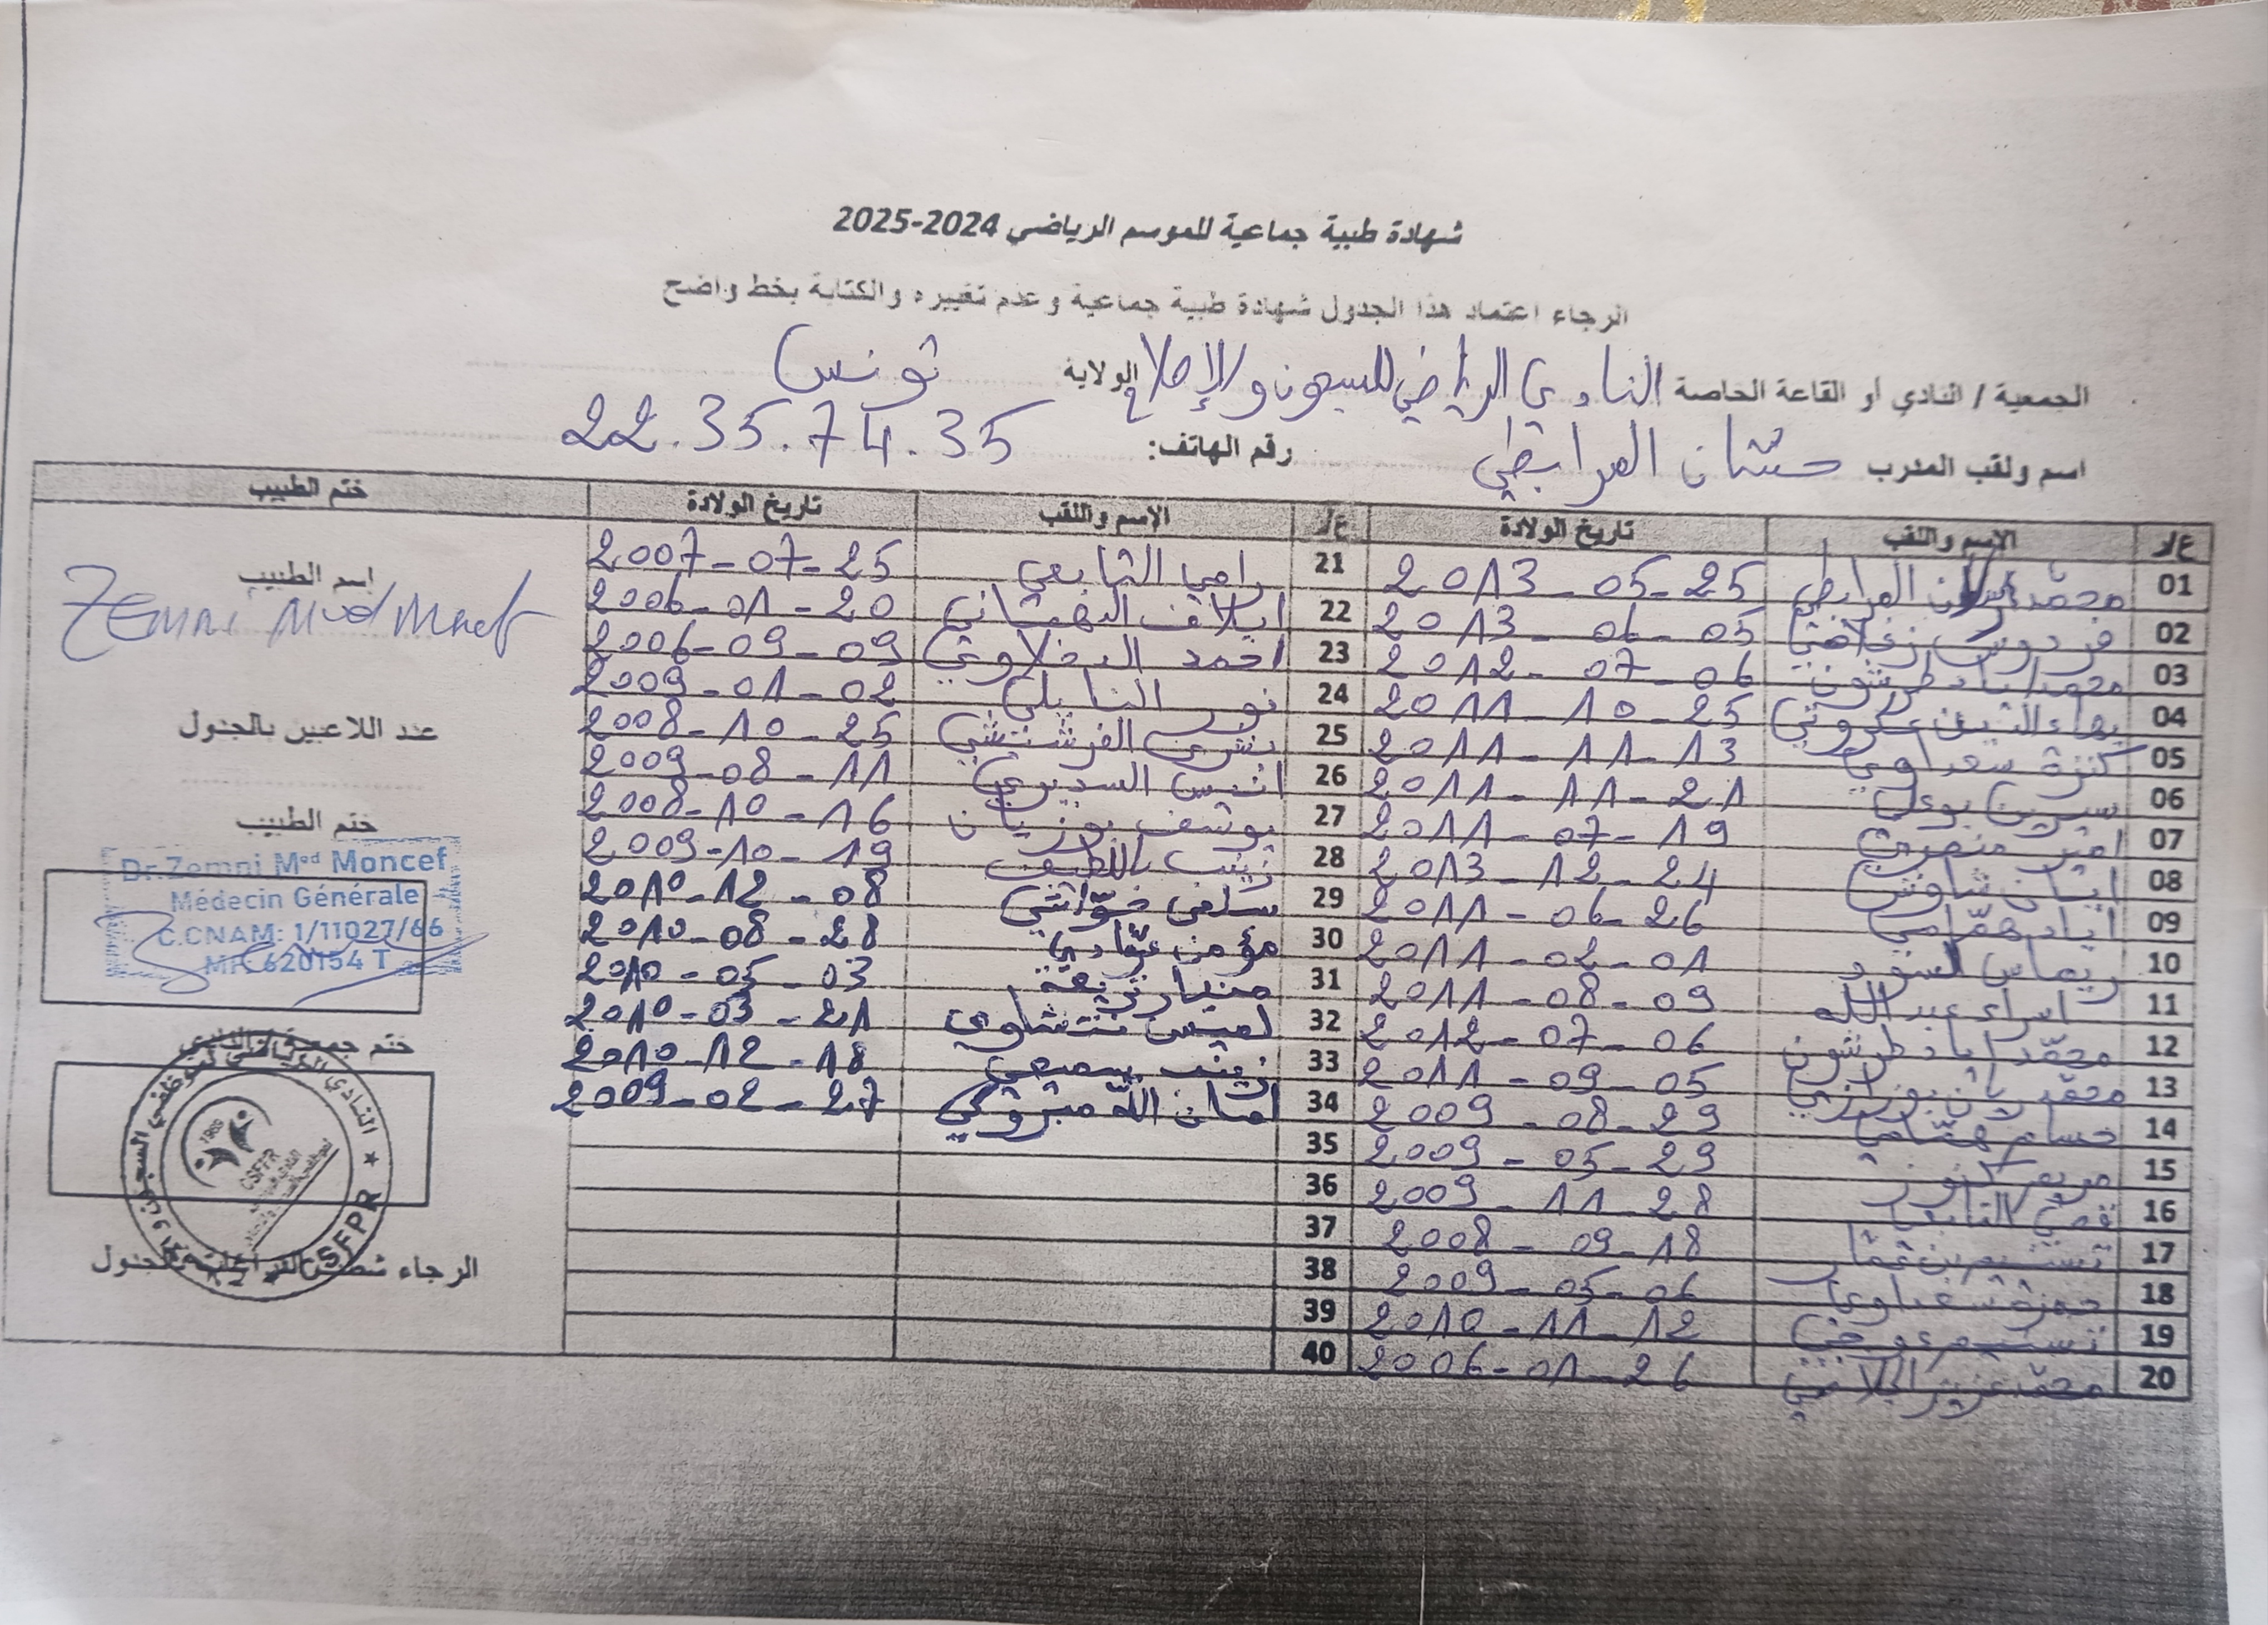 شهادة طبية جماعية للموسم الرياضي 2024-2025
الرجاء اعتماد هذا الجدول شهادة طبية جماعية وعدم تغييره والكتابة بخط واضح
الجمعية / النادي أو القاعة الخاصة النادي الرياضي للسجون والإصلاح الولاية تونس
اسم ولقب المدرب حسّان المرابطي رقم الهاتف: 22.35.74.35
ع/ر الاسم واللقب تاريخ الولادة ع/ر الاسم واللقب تاريخ الولادة ختم الطبيب
01 محمّد المرابطي 2013-05-25
02 فردوس 2013-06-05
03 محمد اياد طرشون 2012-07-06
04 بهاء الدين 2011-10-25
05 كنزة سعداوي 2011-11-13
06 سيرين 2011-11-21
07 امير منصري 2011-07-19
08 شاوش 2013-12-24
09 اياد همّامي 2011-06-26
10 ريماس 2011-02-01
11 اسراء عبد الله 2011-08-09
12 محمّد اياد طرشون 2012-07-06
13 محمّد 2011-09-05
14 حسام همّامي 2009-08-29
15 مريم 2009-05-29
16 قصي التابعي 2009-11-28
17 تسنيم بن عمّار 2008-09-18
18 حمزة سعداوي 2009-05-06
19 تسنيم 2010-11-12
20 محمّد عزيز 2006-01-26
21 رامي التابعي 2007-07-25
22 ايلاف 2006-01-20
23 احمد الدخلاوي 2006-09-09
24 نور النابلي 2009-01-02
25 بشرى الفرشيشي 2008-10-25
26 انيس السديري 2009-08-11
27 يوسف بوزيان 2008-10-16
28 زينب باللطيف 2009-10-19
29 سلمى 2010-12-08
30 مؤمن عبّادي 2010-08-28
31 2010-05-03
32 لميس 2010-03-21
33 زينب سميعي 2010-12-18
34 امان الله مبروكي 2009-02-27
35
36
37
38
39
40
إسم الطبيب
Zemni Med Moncef
عدد اللاعبين بالجدول
ختم الطبيب
Dr. Zemni Med Moncef
Médecin Générale
C.CNAM: 1/11027/66
MF: 620154 T
ختم جمعية
CSFPR
1986
CSFPR
الرجاء شطب الفراغات بالجدول